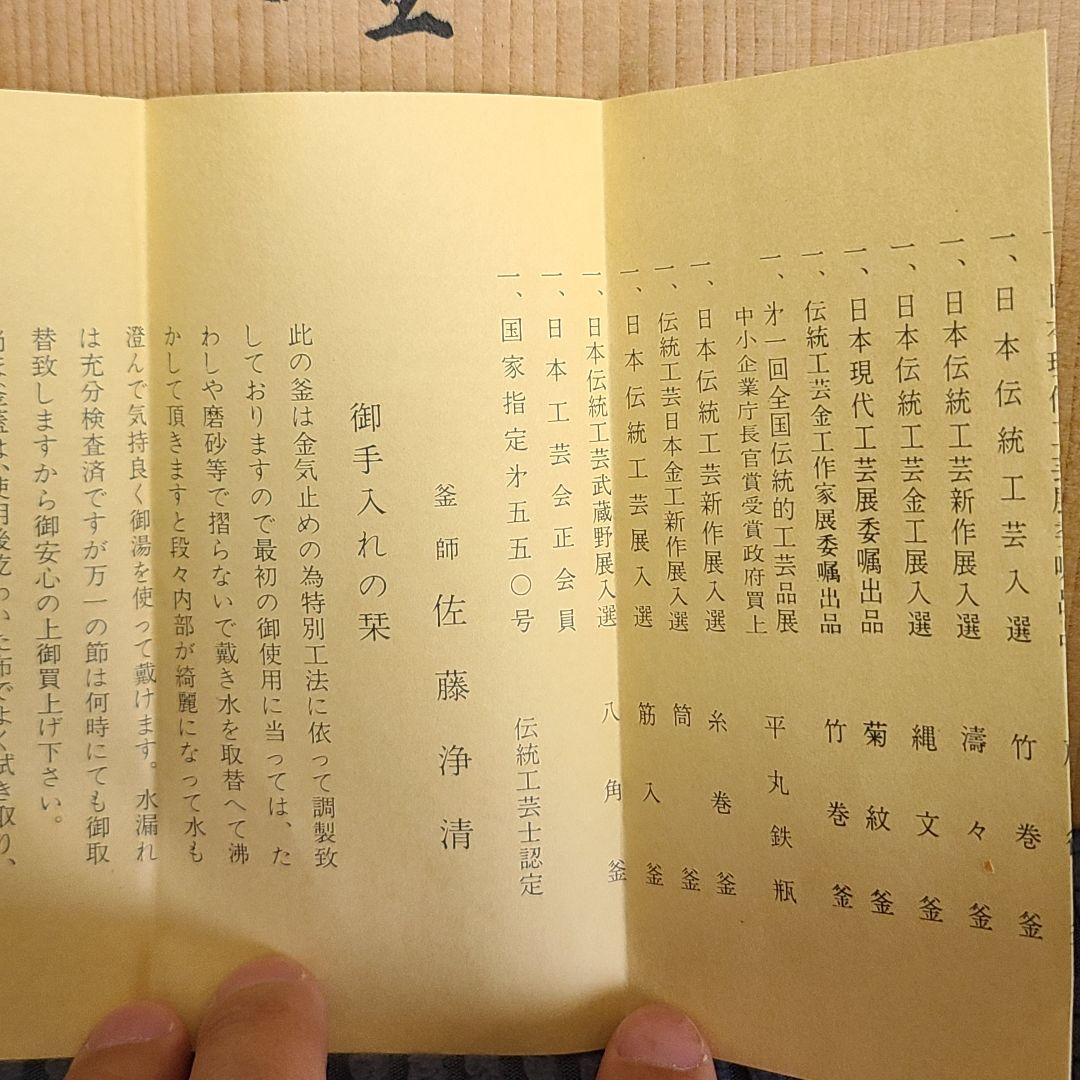 一、日本伝統工芸入選 竹巻釜
一、日本伝統工芸新作展入選 濤々釜
一、日本伝統工芸金工展入選 縄文釜
一、日本現代工芸展委嘱出品 菊紋釜
一、伝統工芸金工作家展委嘱出品 竹巻釜
一、㐧一回全国伝統的工芸品展
中小企業庁長官賞受賞政府買上 平丸鉄瓶
一、日本伝統工芸新作展入選 糸巻釜
一、伝統工芸日本金工新作展入選 筒釜
一、日本伝統工芸展入選 筋入釜
一、日本伝統工芸武蔵野展入選 八角釜
一、日本工芸会正会員
一、国家指定㐧五五〇号 伝統工芸士認定
釜師 佐藤浄清
御手入れの栞
此の釜は金気止めの為特別工法に依って調製致
しておりますので最初の御使用に当っては、た
わしや磨砂等で摺らないで戴き水を取替へて沸
かして頂きますと段々内部が綺麗になって水も
澄んで気持良く御湯を使って戴けます。水漏れ
は充分検査済ですが万一の節は何時にても御取
替致しますから御安心の上御買上げ下さい。